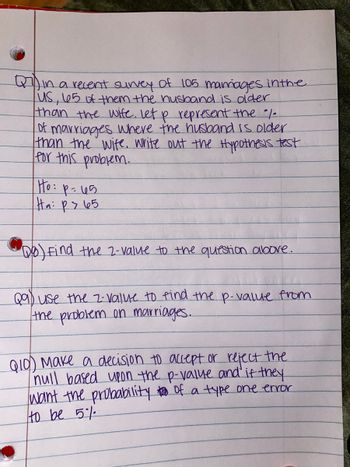 Q7) in a recent survey of 105 marriages in the
US, 65 of them the husband is older
than the wife. let p represent the %
of marriages where the husband is older
than the wife. write out the Hypothesis test
for this problem.
Ho: p = 65
Ha: p > 65
Q8) Find the z-value to the question above.
Q9) use the z-value to find the p-value from
the problem on marriages.
Q10) Make a decision to accept or reject the
null based upon the p-value and if they
want the probability of a type one error
to be 5%